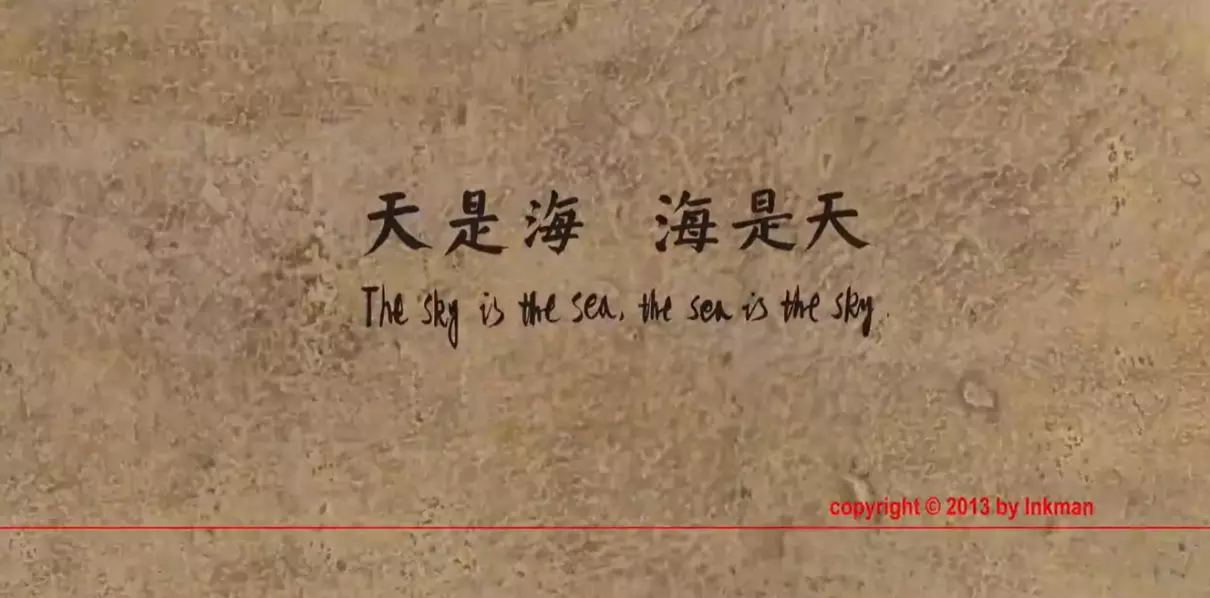 天是海 海是天
The sky is the sea, the sea is the sky.
copyright © 2013 by Inkman